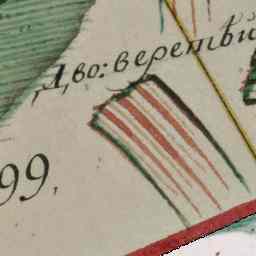 Дво: веретьи
99,